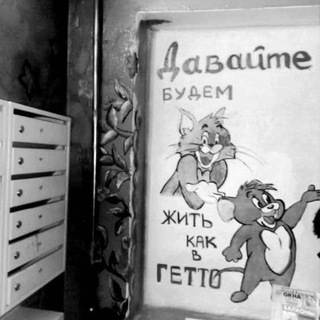 Давайте
БУДЕМ
ЖИТЬ
КАК
В
ГЕТТО
ОКНА